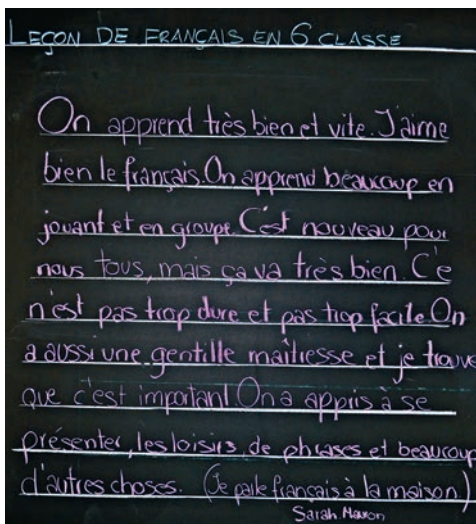 LEÇON DE FRANÇAIS EN 6 CLASSE
On apprend très bien et vite. J'aime
bien le français. On apprend beaucoup en
jouant et en groupe. C'est nouveau pour
nous tous, mais ça va très bien. C'e
n'est pas trop dure et pas trop facile. On
a aussi une gentille maîtresse et je trouve
que c'est important. On a appris à se
présenter, les loisirs, de phrases et beaucoup
d'autres choses. (Je parle français à la maison)
Sarah